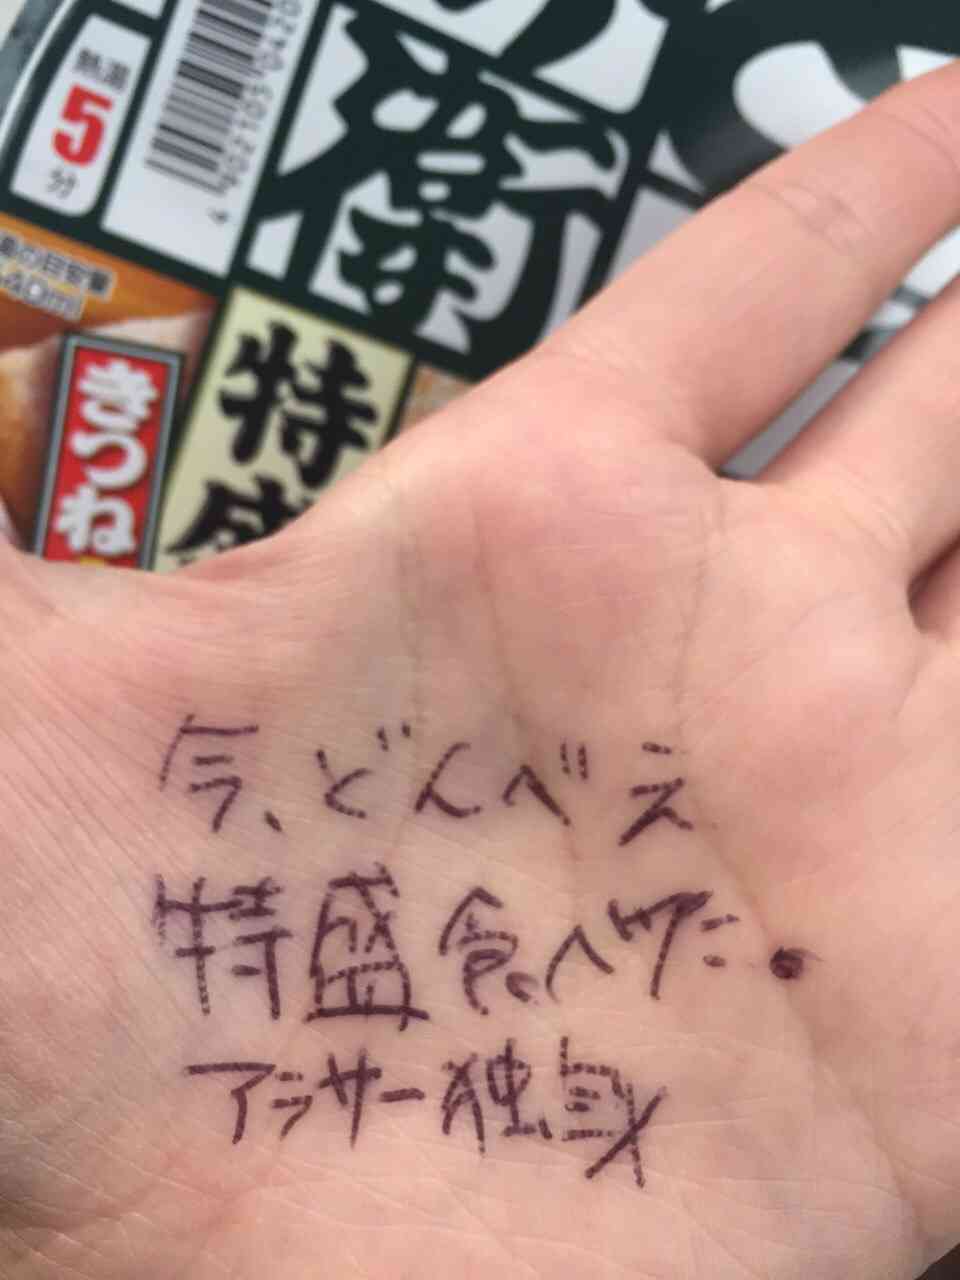 熱湯
5
分
の目安量
衛
きつね
特盛
今、どんべえ
特盛食べた。
アラサー独身